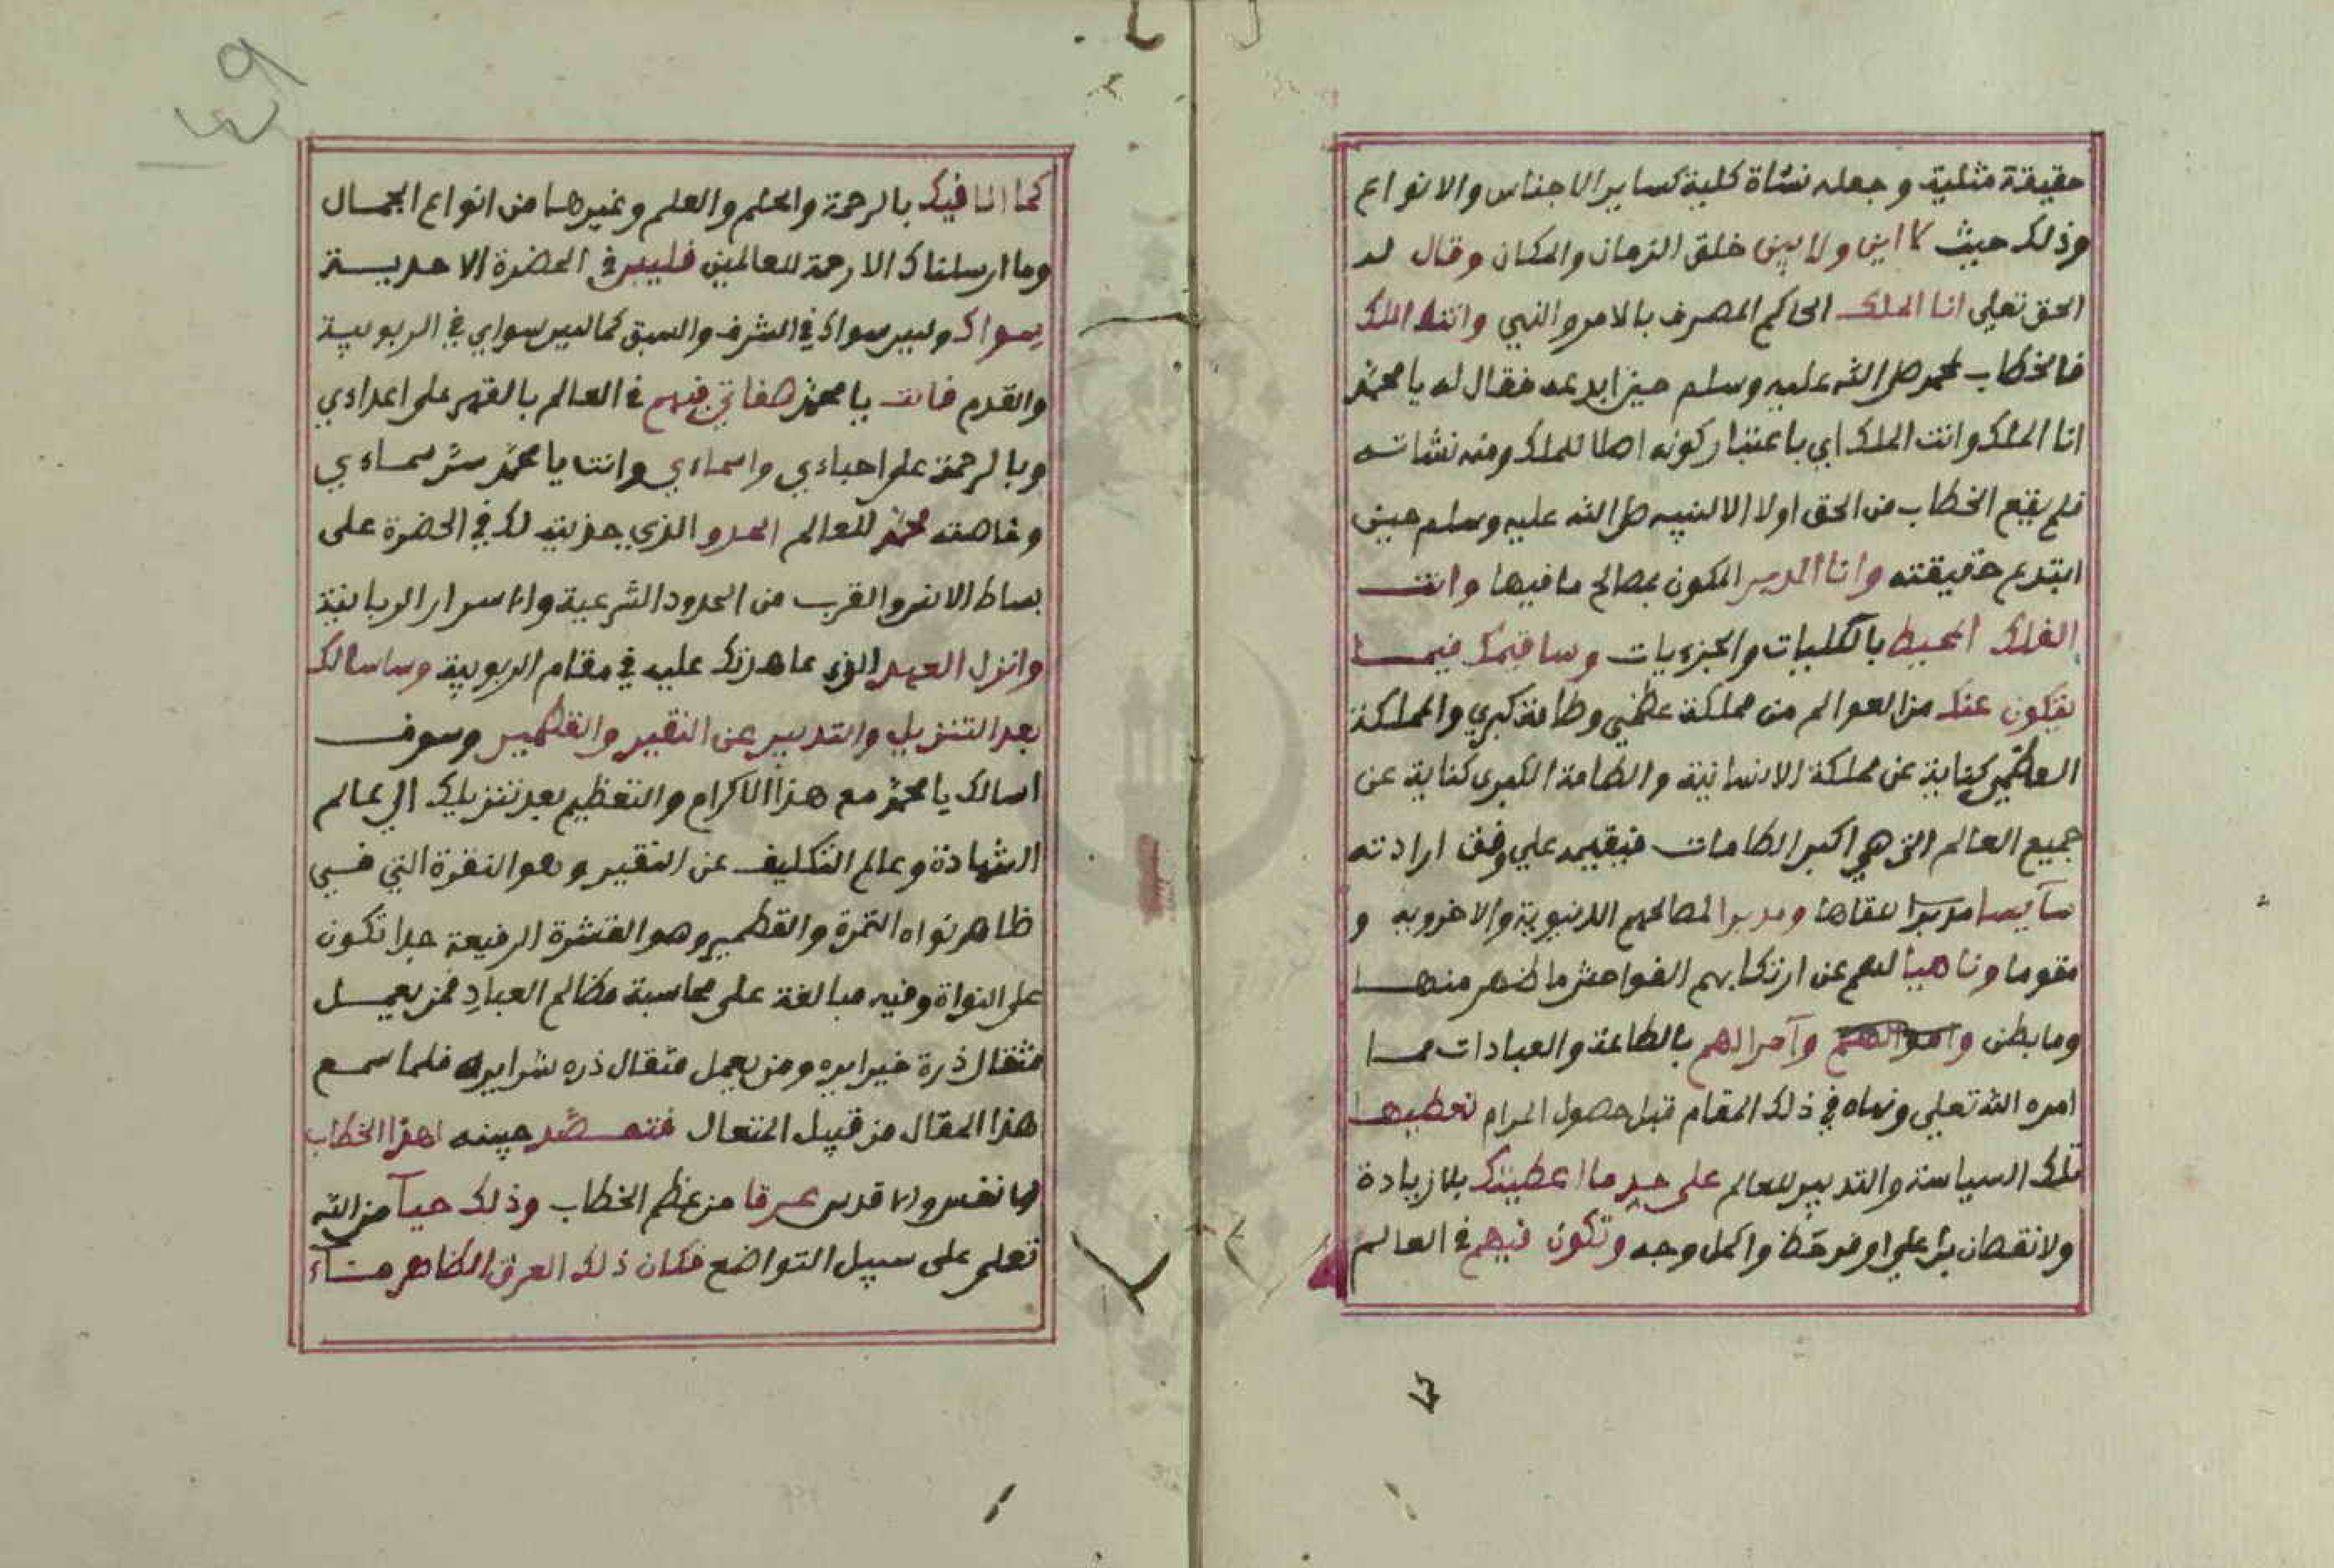 حقيقة مثلية وجعله نشاة كلية كساير الاجناس والانواع
وذلك حيث لا اين ولا بين خلق الزمان والمكان وقال له
الحق تعلى انا الملك الحاكم المصرف بالامر والنهي وانت الملك
فالخطاب لمحمد صلى الله عليه وسلم حين ابدعه فقال له يا محمد
انا الملك وانت الملك اي باعتبار كونه اصلا للملك ومنه نشاته
فلم يقع الخطاب من الحق اولا الا لنبيه صلى الله عليه وسلم حين
ابتدع حقيقته وانا المدبر المكون بمصالح ما فيها وانت
الفلك المحيط بالكليات والجزءيات وساقيمك فيما
يتكون عنك من العوالم من مملكة عظمي وطامة كبري والمملكة
العظمي كناية عن مملكة الانسانية والطامة الكبرى كناية عن
جميع العالم التي هي اكبر الطامات فيقيمه علي وفق ارادته
سآيسا مدبرا لبقاها ومدبرا لمصالحهم الدنيوية والاخرويه و
مقوما وناهيا لهم عن ارتكابهم الفواحش ما ظهر منها
وما بطن وآمرا لهم بالطاعة والعبادات مما
امره الله تعلى ونهاه في ذلك المقام قبل حصول المرام تعطيها
تلك السياسة والتدبير للعالم على حد ما اعطيتك بلا زيادة
ولا نقصان بل علي اوفر حظ واكمل وجه وتكون فيهم في العالم
٣٩
كما انا فيك بالرحمة والحلم والعلم وغيرها من انواع الجمال
وما ارسلناك الا رحمة للعالمين فليس في الحضرة الاحدية
سواك وليس سواك في الشرف والسبق كما ليس سواي في الربوبية
والقدم فانت يا محمد صفاتي فيهم في العالم بالقهر على اعداءي
وبالرحمة على احباءي واسماءي وانت يا محمد سر سماءي
وخاصته محمد للعالم الحدو الذي حديته لك في الحضرة على
بساط الانس والقرب من الحدود الشرعية والاسرار الربانية
وانزل العهد الذي عاهدتك عليه في مقام الربوبية وساسالك
بعد التنزيل والتدبير عن النقير والقطمير وسوف
اسالك يا محمد مع هذا الاكرام والتعظيم بعد تنزيلك الي عالم
الشهادة وعالم التكليف عن النقير وهو النقرة التي في
ظاهر نواه التمرة والقطمير وهو القشرة الرفيعة جدا تكون
على النواة وفيه مبالغة على محاسبة مظالم العباد فمن يعمل
مثقال ذرة خيرا يره ومن يعمل مثقال ذره شرا يره فلما سمع
هذا المقال من قبيل المتعال فتفصد جبينه لهذا الخطاب
الانفس والاقدس عرقا من عظم الخطاب وذلك حيآ من الله
تعلى على سبيل التواضع فكان ذلك العرق الظاهر مآء